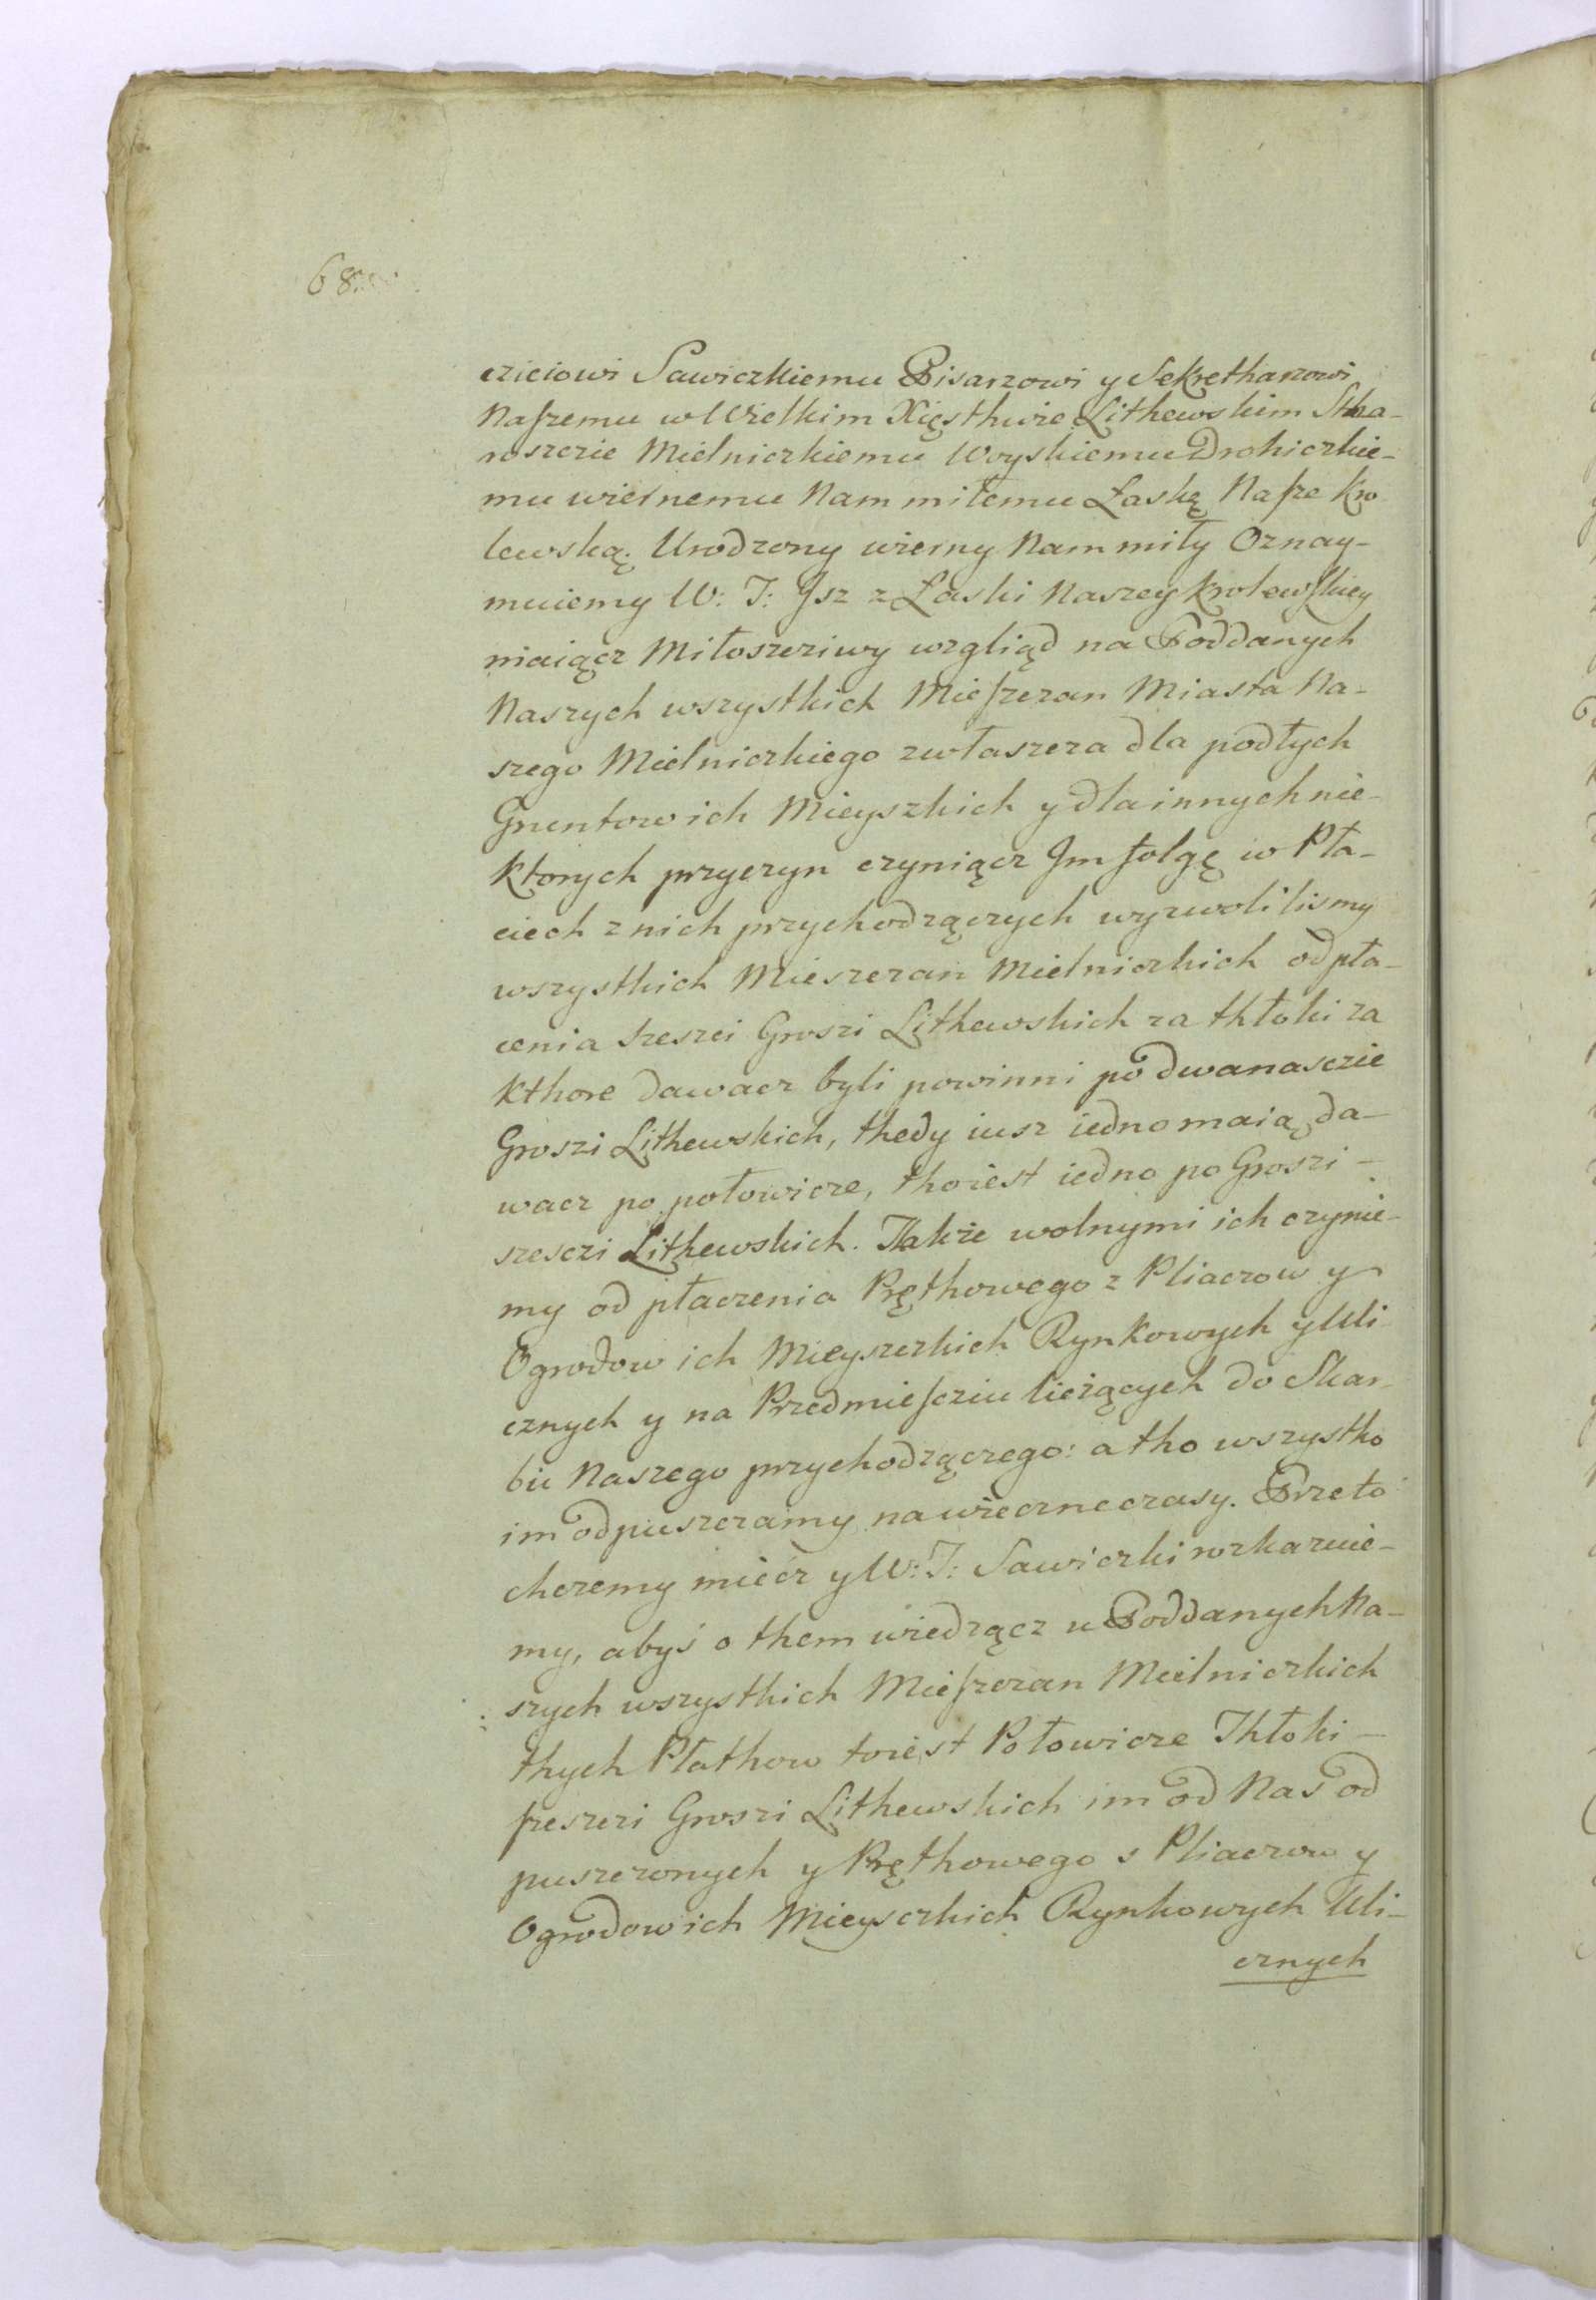 68
cziciowi Sawiczkiemu Pisarzowi y Sekretharzowi
Naſzemu w Wielkim Xięsthwie Lithewskim Stha-
roszczie Mielniczkiemu Woyskiemu Drohiczkie-
mu wiernemu Nam miłemu Łaskę Naſze Kro
lewską. Urodzony wierny Nam miły Oznay-
muiemy W: T: Jsz z Łaski Naszey krolewſkiey
maiącz Miłoszcziwy wzgliąd na Poddanych
Naszych wszystkich Mieſzczan Miasta Na-
szego Mielniczkiego zwłaszcza dla podłych
Gruntow ich Mieyszkich y dla innych nie-
ktorych przyczyn czyniącz Jm folgę w Pła-
ciech z nich przychodzączych wyzwolilismy
wszystkich Mieszczan Mielniczkich od pła-
cenia szeszci Groszi Lithewskich za thłoki za
kthore dawacz byli powinni po dwanasczie
Groszi Lithewskich, thedy iusz iedno maią da-
wacz po połowicze, thoiest iedno po Groszi -
szesczi Lithewskich. Także wolnymi ich czynie-
my od płaczenia Pręthowego z Pliaczow y
Ogrodow ich Mieyszczkich Rynkowych y Uli
cznych y na Przedmieſcziu lieżących do Skar-
bu Naszego przychodzączego: a tho wszystko
im odpuszczamy na wieczne czasy. Przeto
chczemy miecz y W: T: Sawiczki rozkazuie-
my, abyś o them wiedzącz u Poddanych Na-
szych wszystkich Mieſzczan Mielniczkich
thych Płathow toiest Połowicze Thłoki -
ſzeszczi Groszi Lithewskich im od Nas od
puszczonych y Pręthowego s Pliaczow y
Ogrodow ich Mieysczkich Rynkowych Uli-
cznych